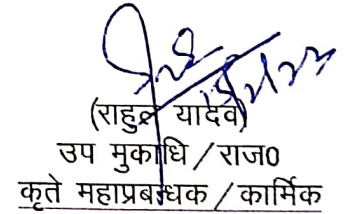 (राहुल यादव)
उप मुकाधि / राज0
कृते महाप्रबन्धक / कार्मिक